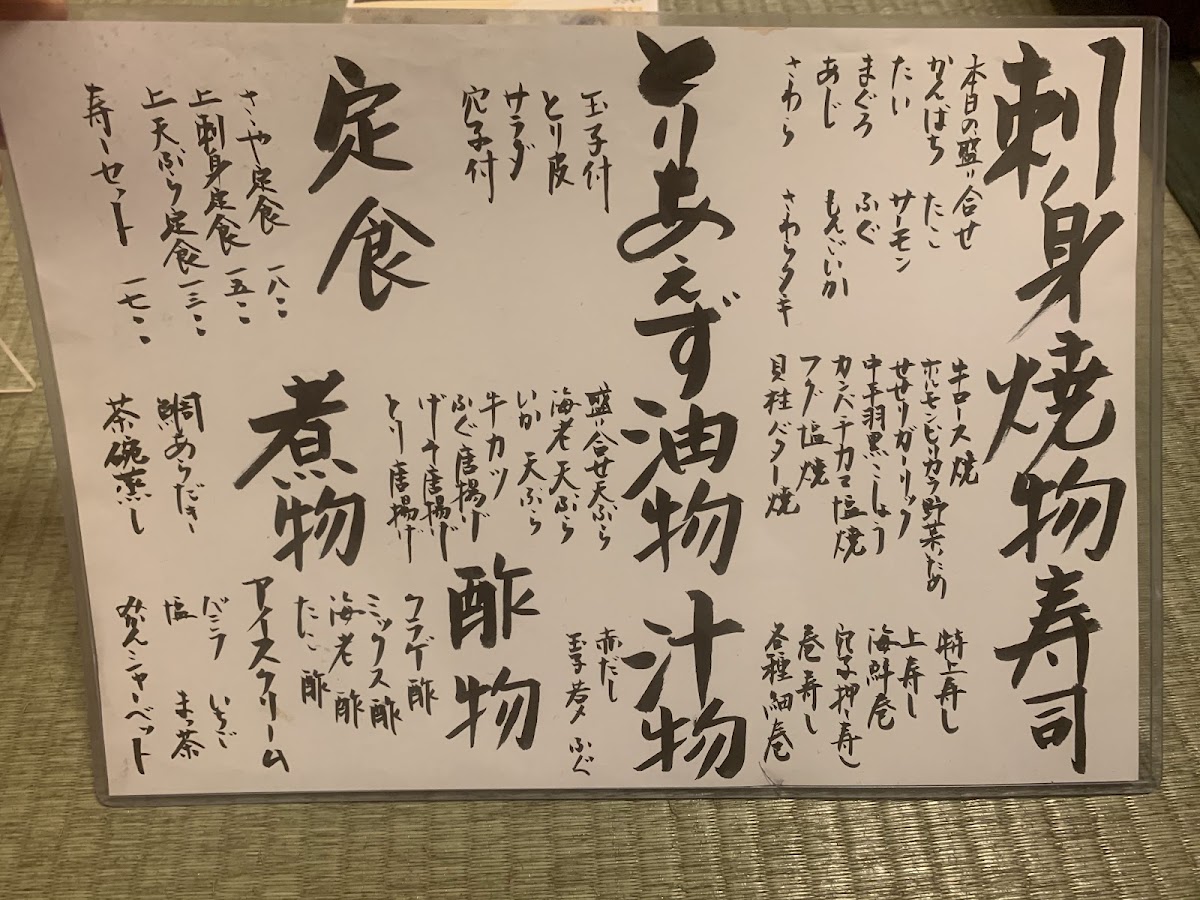 刺身
本日の盛り合せ
かんぱち
たこ
たい
サーモン
まぐろ
ふぐ
あじ
もんごいか
さわら
さわらタタキ
焼物
牛ロース焼
ホルモンピリカラ野菜いため
せせりガーリック
中手羽黒こしょう
カンパチカマ塩焼
フグ塩焼
貝柱バター焼
寿司
特上寿し
上寿し
海鮮巻
穴子押寿し
巻寿し
各種細巻
とりあえず
玉子付
とり皮
サラダ
穴子付
油物
盛り合せ天ぷら
海老天ぷら
いか天ぷら
牛カツ
ふぐ唐揚げ
げそ唐揚げ
とり唐揚げ
汁物
赤だし
玉子 若メ ふぐ
酢物
クラゲ酢
ミックス酢
海老酢
たこ酢
定食
さゝや定食 一八〇〇
上刺身定食 一五〇〇
上天ぷら定食 一三〇〇
寿しセット 一七〇〇
煮物
鯛あらだき
茶碗蒸し
アイスクリーム
いちご
塩
まっ茶
みかんシャーベット